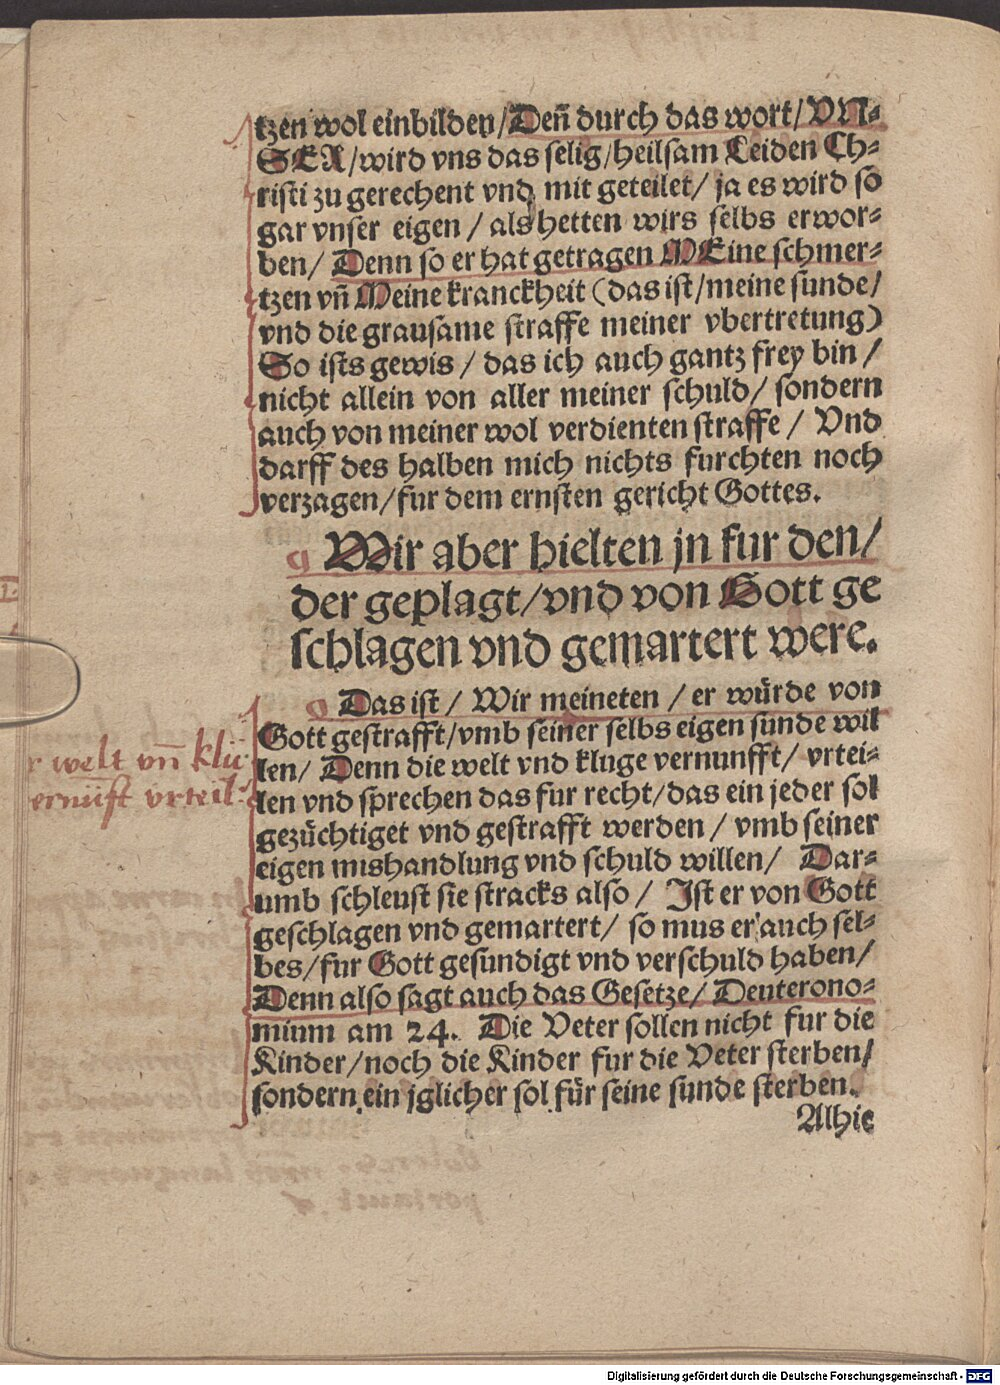 tzen wol einbilden/Deñ durch das wort/VN-
SER/wird vns das selig/heilsam Leiden Ch-
risti zu gerechent vnd mit geteilet/ ja es wird so
gar vnser eigen / als hetten wirs selbs erwor-
ben/ Denn so er hat getragen MEine schmer-
tzen vñ Meine kranckheit (das ist/meine sunde/
vnd die grausame straffe meiner vbertretung)
So ists gewis / das ich auch gantz frey bin /
nicht allein von aller meiner schuld/ sondern
auch von meiner wol verdienten straffe / Vnd
darff des halben mich nichts furchten noch
verzagen/fur dem ernsten gericht Gottes.
Wir aber hielten jn fur den/
der geplagt/vnd von Gott ge
schlagen vnd gemartert were.
Das ist / Wir meineten / er würde von
Gott gestrafft/vmb seiner selbs eigen sunde wil
len/ Denn die welt vnd kluge vernunfft/ vrtei-
r welt vñ klu
len vnd sprechen das fur recht/das ein jeder sol
ernūft vrteil.
gezüchtiget vnd gestrafft werden / vmb seiner
eigen mishandlung vnd schuld willen/ Dar-
umb schleust sie stracks also / Ist er von Gott
geschlagen vnd gemartert/ so mus er auch sel-
bes/fur Gott gesundigt vnd verschuld haben/
Denn also sagt auch das Gesetze/ Deuterono-
mium am 24. Die Veter sollen nicht fur die
Kinder/noch die Kinder fur die Veter sterben/
sondern ein jglicher sol für seine sunde sterben.
Alhie
Digitalisierung gefördert durch die Deutsche Forschungsgemeinschaft - DFG